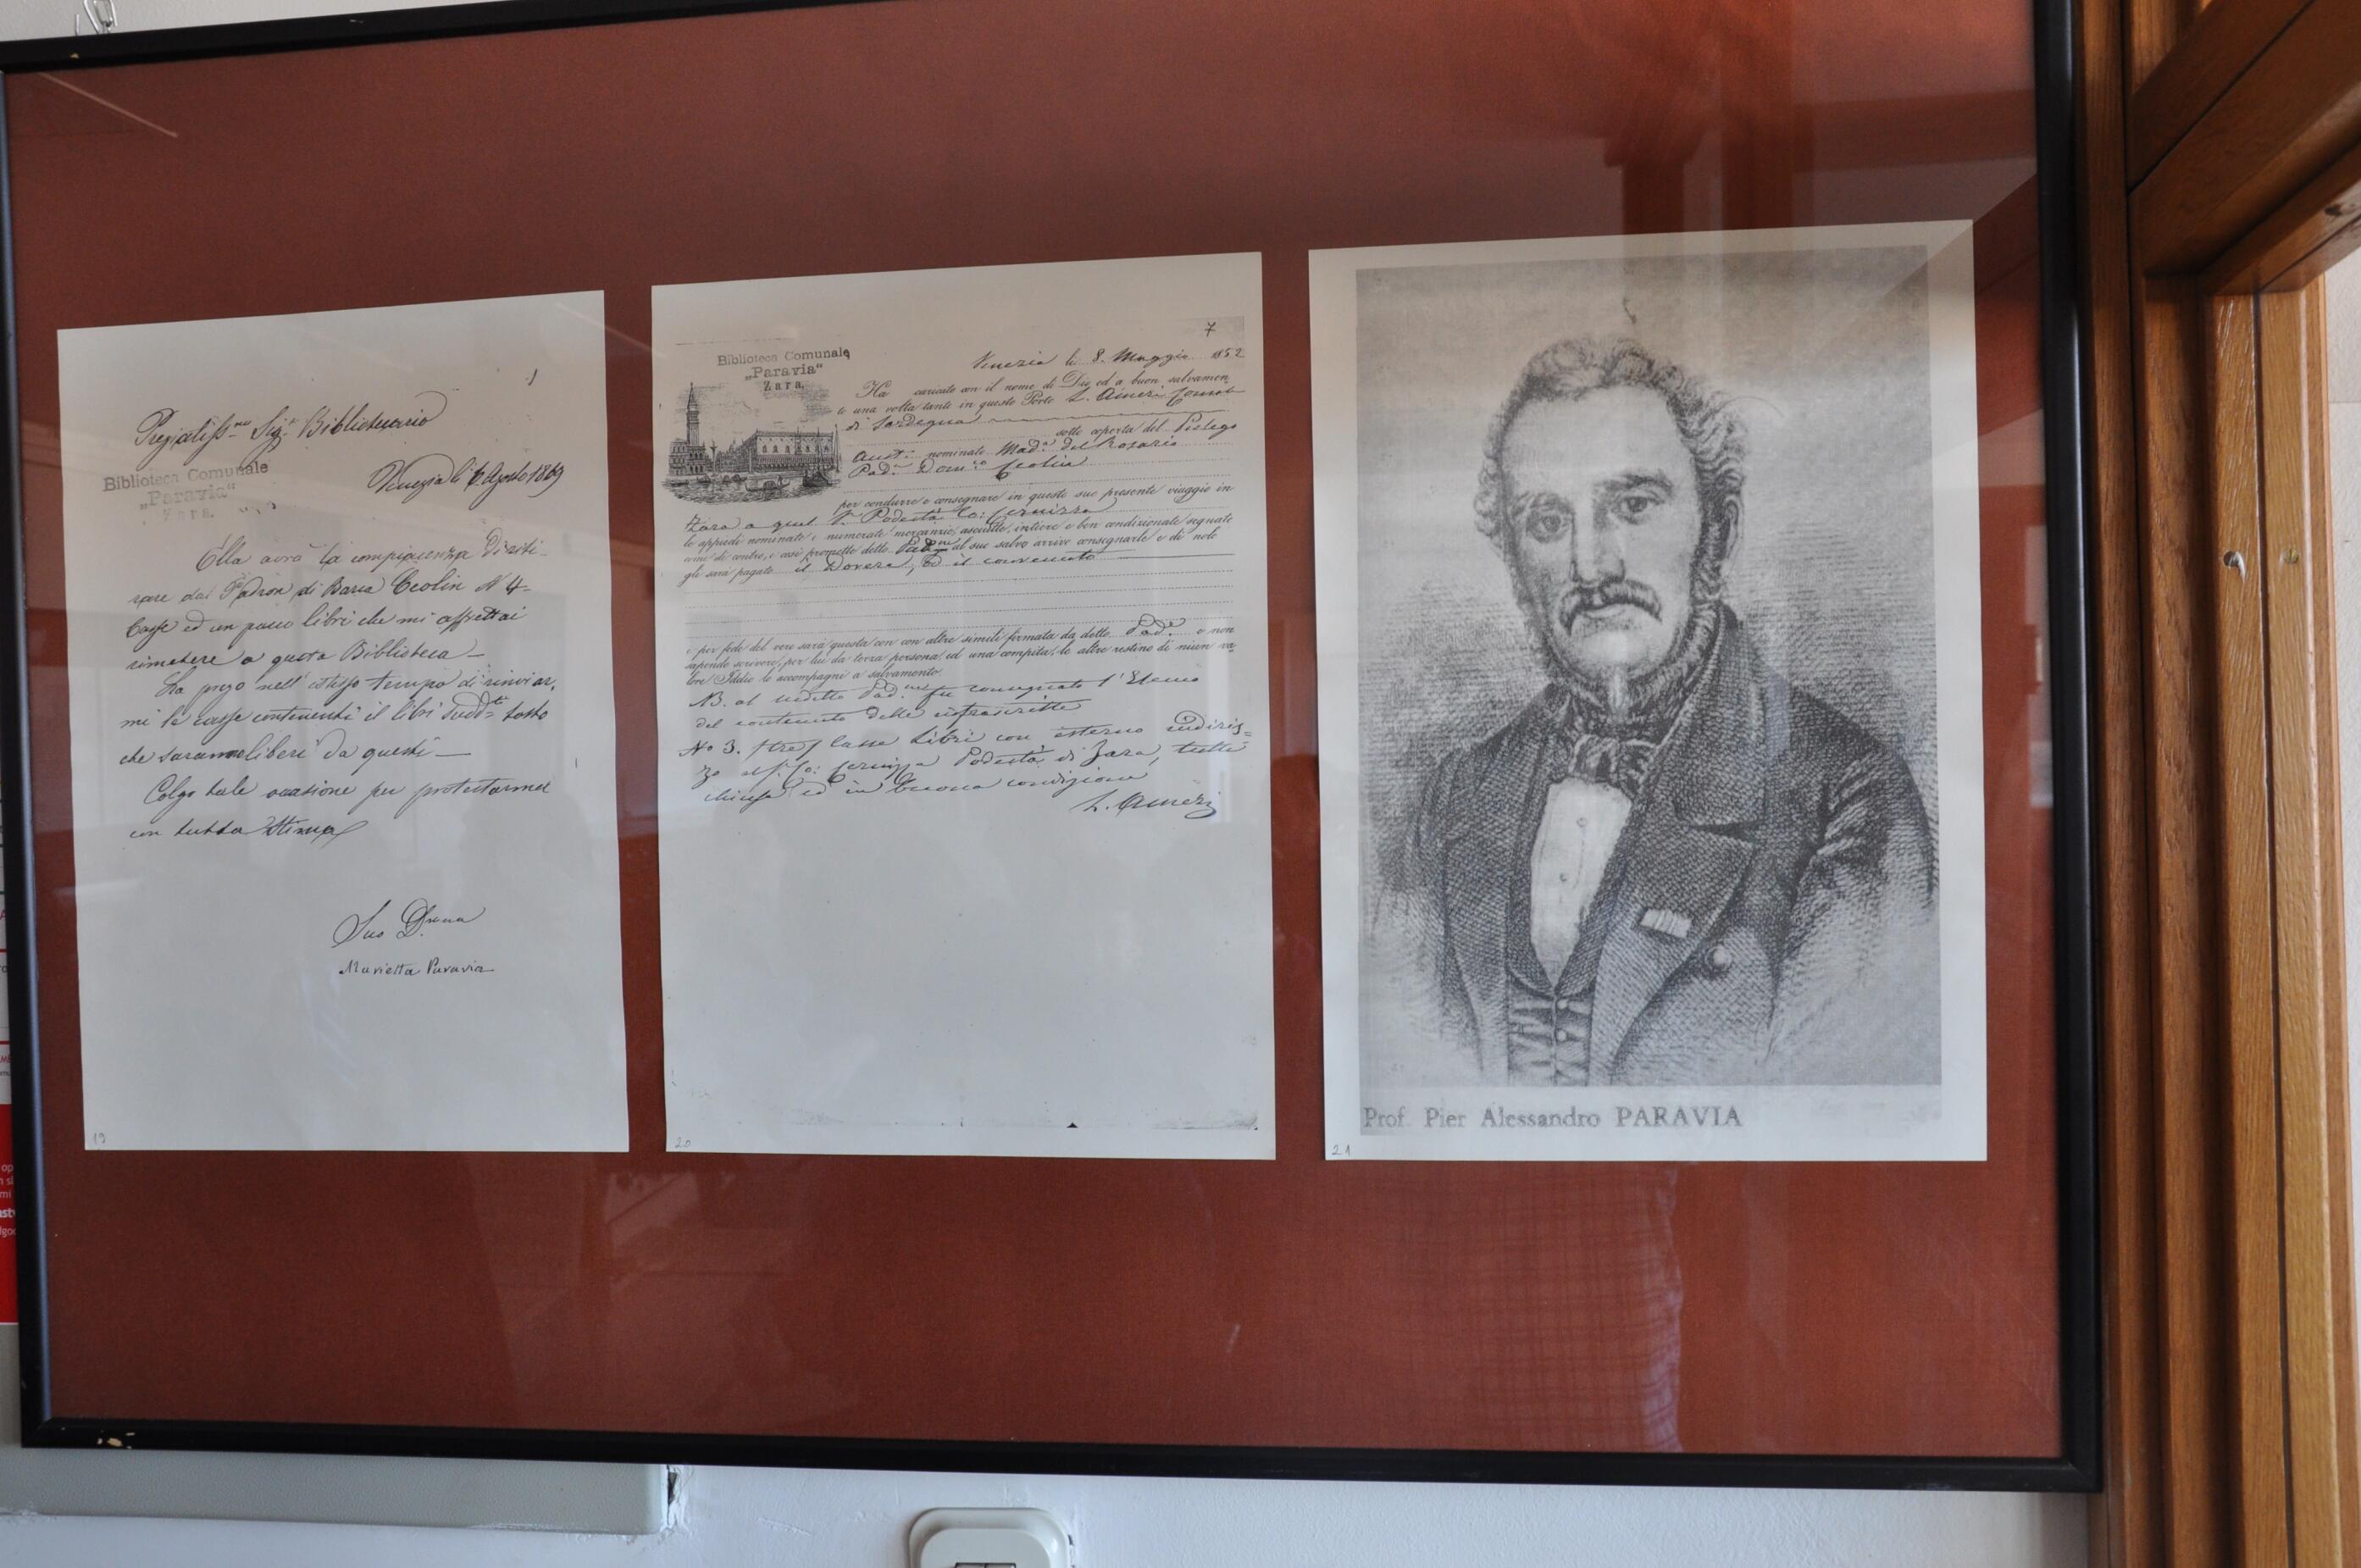 Pregiatiss.mo Sig.r Bibliotecario
Biblioteca Comunale
„Paravia“
Zara
Venezia li 6 Agosto 1869
Ella avrà la compiacenza di riti-
rare dal Padron di Barca Ceolin N 4
Casse ed un pacco libri che mi affrettai
rimettere a questa Biblioteca
La prego nell' istesso tempo di rinviar,
mi le casse contenenti il libri sudd.ti tosto
che saranno liberi da questi
Colgo tale occasione per protestarmi
con tutta stima
Sua
Marietta Paravia
19
7
Biblioteca Comunale
„Paravia“
Zara
Venezia li 8. Maggio 1852
Ha caricato con il nome di Dio ed a buon salvamen-
to una volta tanto in questo Porto L. Ameri Console
di Sardegna
sotto coperta del Pielego
Aust.o nominato Mad.a del Rosario
Pad.n Dom.co Ceolin
per condurre e consegnare in questo suo presente viaggio in
Zara a quel Podestà Co: Cernizza
le appiedi nominate, e numerate mercanzie, asciutte, intiere e ben condizionate segnate
come di contro, e così promette detto Pad.ne al suo salvo arrivo consegnarle e di nolo
gli sarà pagato il Dovere, ed il convenuto
e per fede del vero sarà questa con con altre simili firmata da detto Pad.e e non
sapendo scrivere, per lui da terza persona, ed una compita, le altre restino di niun va-
lore. Iddio lo accompagni a salvamento.
NB. al sudetto Pad.ne fu consegnato l'Elenco
del contenuto delle infrascritte
N.o 3. tre Casse Libri con esterno indiriz=
zo al Co: Cernizza Podestà di Zara, tutte
chiuse ed in buona condizione
L. Ameri
20
Prof. Pier Alessandro PARAVIA
21